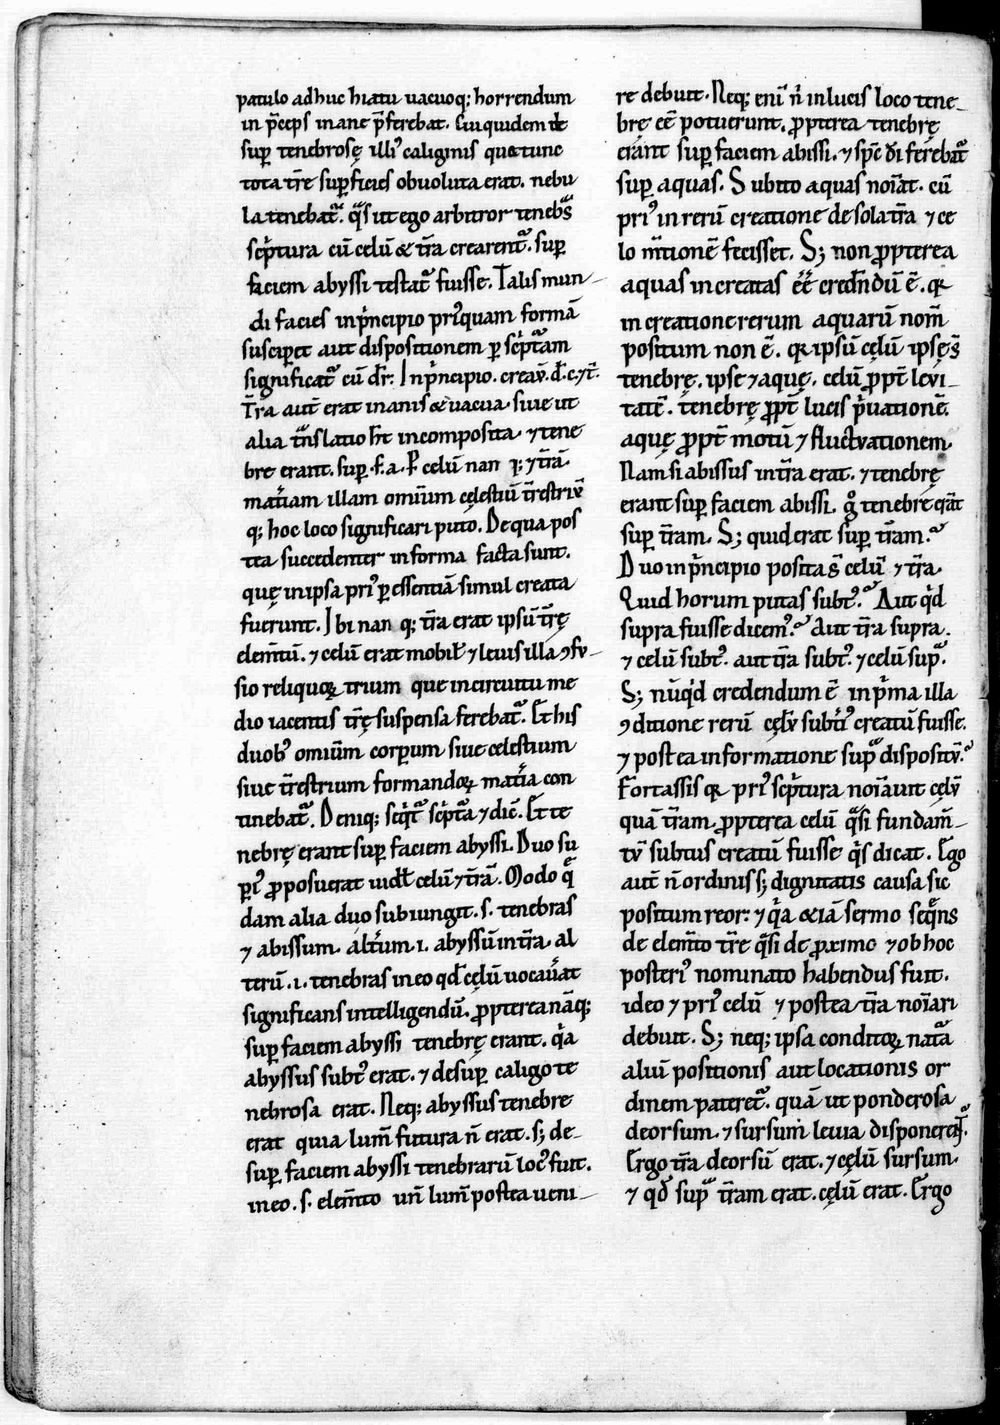 patulo adhuc hiatu uacuoq; horrendum
in p̄ceps inane p̄ferebat. Cui quidem de
sup̱ tenebrosę illiꝰ caliginis quę tunc
tota tr̄e sup̱ficies obuoluta erat. nebu
la tenebat᷑. q̄s ut ego arbitror teneb̄s
sc̄ptura cū celū & tr̄a crearent᷑. sup̱
faciem abyssi testat᷑ fuisse. Talis mun-
di facies in p̄ncipio priꝰquam formā
suscip̱et aut dispositionem p̱ sc̄ptam
significat᷑ cū dr̄. In p̄ncipio. creav̄. d̄. c. ⁊ t̄.
T̄ra aut̄ erat inanis & uacua siue ut
alia tn̄slatio ht̄ incomposita. ⁊ tene
bre erant. sup̱. f. a. P̱ celū nan q; ⁊ tr̄ā
mat̄iam illam omīum celestiū tr̄estriū
q; hoc loco significari puto. De qua pos
tea succedenter in forma facta sunt.
quę in ipsa priꝰ p̱ essentiā simul creata
fuerunt. Ibi nan q; tr̄a erat ipsū tr̄ę
elem̄tū. ⁊ celū erat mobil̄ ⁊ leuis illa ꝯfu-
sio reliquoꝝ trium que in circuitu me
dio iacentis tr̄ę suspensa ferebat᷑. Et his
duobꝰ omiūm corp̱um siue celestium
siue tr̄estrium formandoꝝ mat̄ia con
tinebat᷑. Deniq; seq̄t᷑ sc̄pt᷑a ⁊ dic̄. Et te
nebrę erant sup̱ faciem abyssi. Duo su
p̱iꝰ ꝓposuerat uidl̄t celū ⁊ tr̄ā. Modo q̄
dam alia duo subiungit. s. tenebras
⁊ abissum. alt̄um .i. abyssū in tr̄a. al
terū .i. tenebras in eo qd̄ cęlū uocau̅at
significans intelligendū. ꝓpterea nāq;
sup̱ faciem abyssi tenebrę erant. q̄a
abyssus subtꝰ erat. ⁊ desup̱ caligo te
nebrosa erat. Neq; abyssus tenebre
erat quia lum̄ futura n̄ erat. s; de-
sup̱ faciem abyssi tenebrarū locꝰ fuit.
in eo. s. elem̄to un̄ lum̄ postea ueni-
re debuit. Neq; enī n̄ in lucis loco tene-
brę eē potuerunt. ꝓpterea tenebrę
erant sup̱ faciem abissi. ⁊ sp̄c d̄i ferebat᷑
sup̱ aquas. Subito aquas noīat. cū
priꝰ in rerū creatione de sola tr̄a ⁊ ce
lo m̄tionē fecisset. S; non ꝓpterea
aquas increatas eē̄ credn̄dū ē. qꝛ
in creatione rerum aquarū nom̄
positum non ē. qꝛ ipsū cęlū ipsęs̄
tenebrę. ipse ⁊ aquę. celū ꝓpt̄ levi-
tatē. tenebrę ꝓpt̄ lucis p̄uationē.
aquę ꝓpt̄ motū ⁊ fluctuationem.
Nam si abissus in tr̄a erat. ⁊ tenebrę
erant sup̱ faciem abissi. g̊ tenebrę ēāt
sup̱ tr̄am. S; quid erat sup̱ tr̄am?
Duo in p̄ncipio posita s̄ celū ⁊ tr̄a.
Quid horum putas subtꝰ? Aut q̄d
supra fuisse dicemꝰ? Aut tr̄a supra.
⁊ celū subtꝰ. aut tr̄a subtꝰ. ⁊ celū sup̄.
S; nūq̄d credendum ē in p̄ma illa
ꝯditione rerū cęlū subtꝰ creatū fuisse.
⁊ postea in formatione sup̄ dispositū?
Fortassis qꝛ priꝰ sc̄ptura noīauit cęlū
quā tr̄am. ꝓpterea celū q̄si fundam̄-
tū subtus creatū fuisse q̄s dicat. Ego
aut̄ n̄ ordinis s; dignitatis causa sic
positum reor: ⁊ q̄a & iā sermo seq̄ns
de elem̄to tr̄e q̄si de ꝓximo ⁊ ob hoc
posteriꝰ nominato habendus fuit.
ideo ⁊ priꝰ celū ⁊ postea tr̄a noīari
debuit. S; neq; ipsa conditoꝝ nat᷑a
aliū positionis aut locationis or
dinem pateret᷑. quā ut ponderosa
deorsum. ⁊ sursum leuia disponeret᷑.
Ergo tr̄a deorsū erat. ⁊ cęlū sursum.
⁊ qd̄ sup̄ tr̄am erat. cęlū erat. Ergo